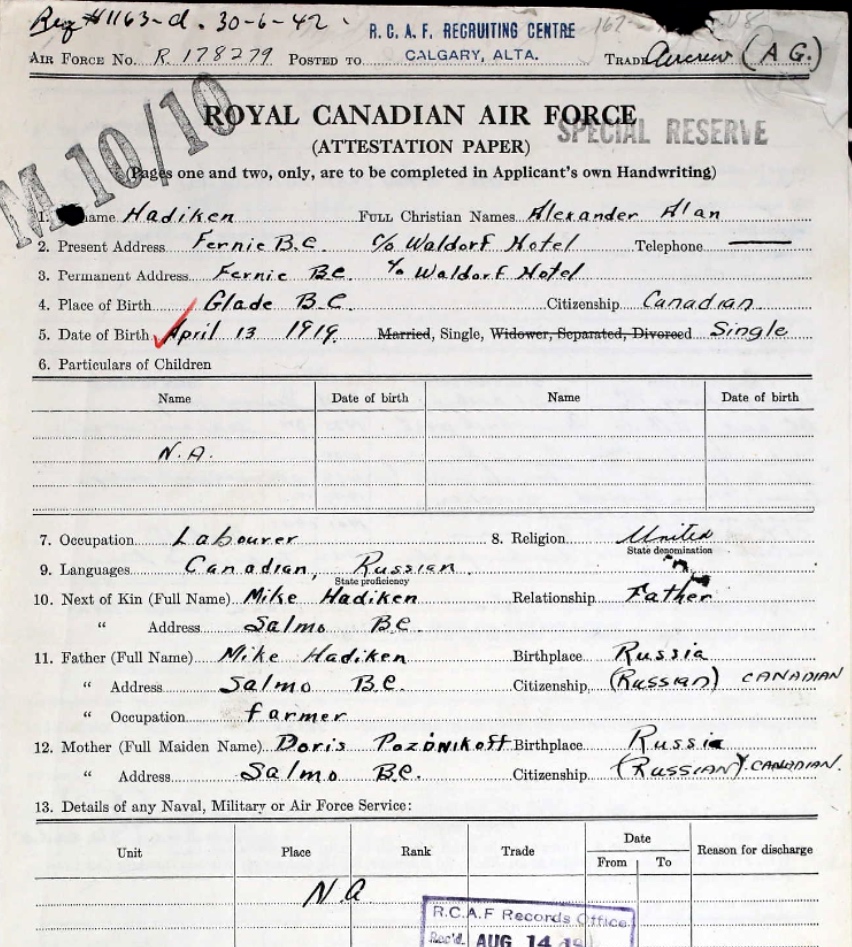 Reg #1163-d. 30-6-42. R.C.A.F. RECRUITING CENTRE
AIR FORCE No. R 178279 POSTED TO CALGARY, ALTA. TRADE Aircrew (A G.)
ROYAL CANADIAN AIR FORCE
SPECIAL RESERVE
M 10/10
(ATTESTATION PAPER)
(Pages one and two, only, are to be completed in Applicant's own Handwriting)
1. name Hadiken FULL Christian Names Alexander Alan
2. Present Address Fernie B.C. c/o Waldorf Hotel Telephone —
3. Permanent Address Fernie B.C. c/o Waldorf Hotel
4. Place of Birth Glade B.C. Citizenship Canadian
5. Date of Birth April 13 1919 Married, Single, Widower, Separated, Divorced Single
6. Particulars of Children
Name Date of birth Name Date of birth
N.A.
7. Occupation Labourer 8. Religion United
State denomination
9. Languages Canadian, Russian
State proficiency
10. Next of Kin (Full Name) Mike Hadiken Relationship Father
" Address Salmo B.C.
11. Father (Full Name) Mike Hadiken Birthplace Russia
" Address Salmo B.C. Citizenship (Russian) CANADIAN
" Occupation farmer
12. Mother (Full Maiden Name) Doris Pozonikoff Birthplace Russia
" Address Salmo B.C. Citizenship (RUSSIAN) CANADIAN.
13. Details of any Naval, Military or Air Force Service:
Unit Place Rank Trade Date Reason for discharge
From To
N.A
R.C.A.F Records Office
Rec'd. AUG 14 19